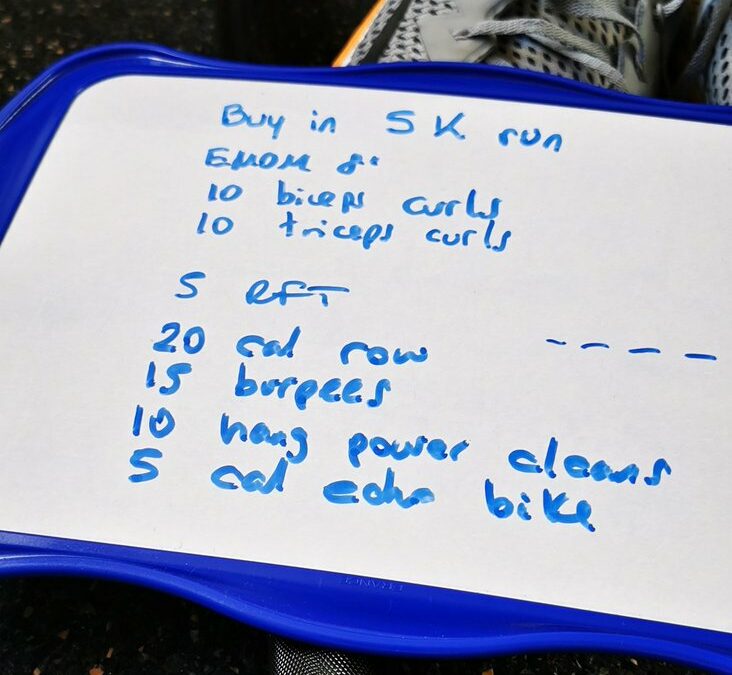 Buy in 5 K run
EMOM 8:
10 biceps curls
10 triceps curls
5 RFT
20 cal row
15 burpees
10 hang power cleans
5 cal echo bike